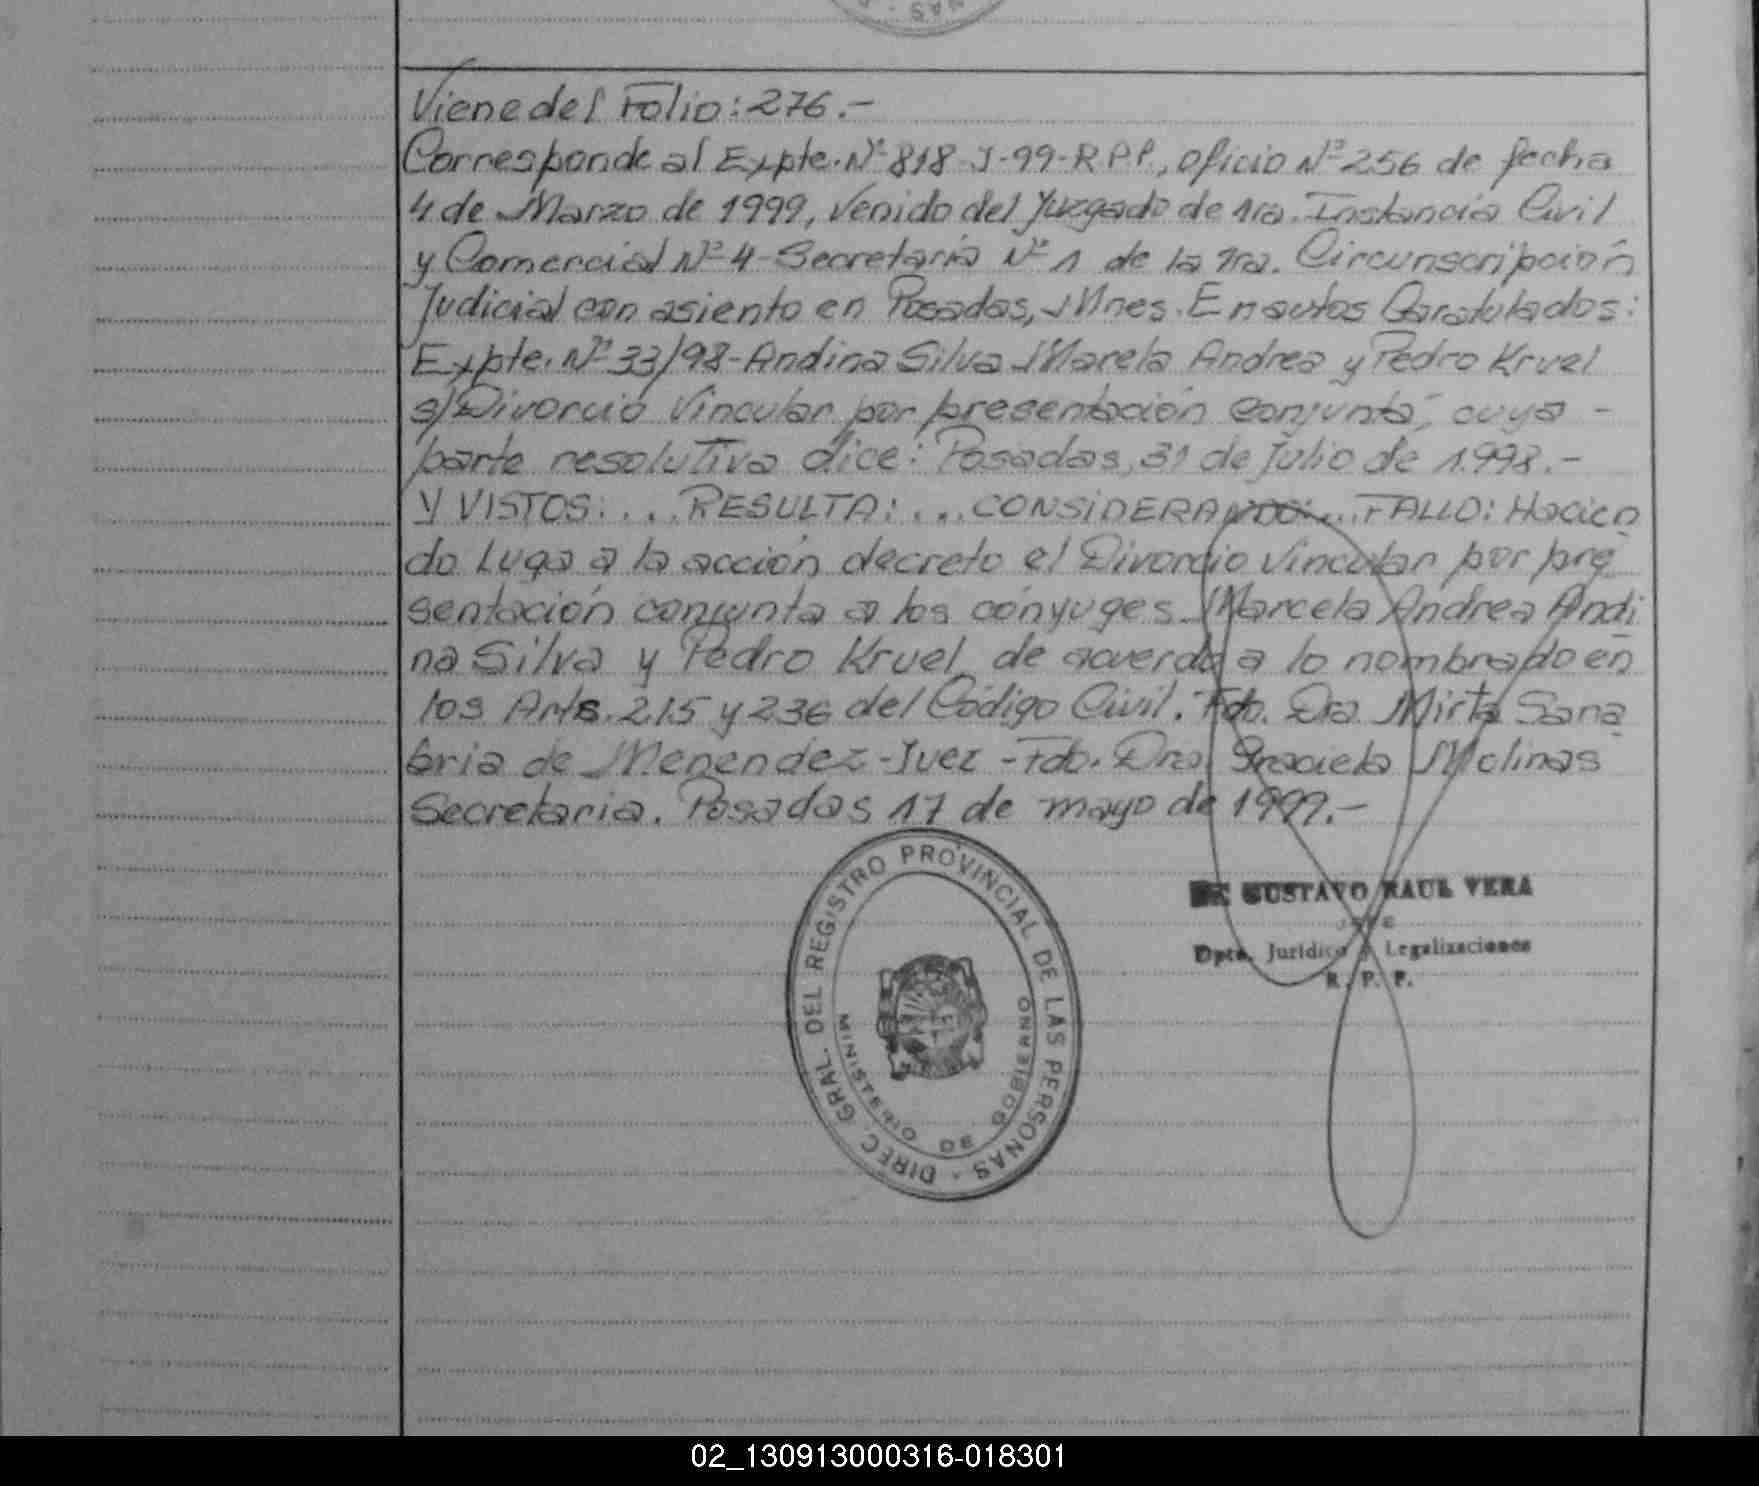 Viene del Folio: 276.-
Corresponde al Expte. Nº 818-J-99-R.P.P., oficio Nº 256 de fecha
4 de Marzo de 1999, Venido del Juzgado de 1ra. Instancia Civil
y Comercial Nº 4-Secretaría Nº 1 de la 1ra. Circunscripción
Judicial con asiento en Posadas, Mnes. En autos Caratulados:
Expte. Nº 33/98-Andina Silva Marela Andrea y Pedro Kruel
s/Divorcio Vincular por presentación conjunta", cuya -
parte resolutiva dice: Posadas, 31 de Julio de 1.998.-
Y VISTOS: ... RESULTA: ... CONSIDERANDO: ... FALLO: Hacien
do Luga a la acción decreto el Divorcio vincular por pre
sentación conjunta a los cónyuges Marcela Andrea Andi
na Silva y Pedro Kruel de acuerdo a lo nombrado en
los Arts. 215 y 236 del Código Civil. Fdo. Dra. Mirta Sana
bria de Menendez-Juez-Fdo. Dra. Graciela Molinas
Secretaria. Posadas 17 de mayo de 1999.-
DIREC. GRAL. DEL REGISTRO PROVINCIAL DE LAS PERSONAS
MINISTERIO DE GOBIERNO
GUSTAVO RAUL VERA
JEFE
Dpto. Jurídico y Legalizaciones
R. P. P.
02_130913000316-018301